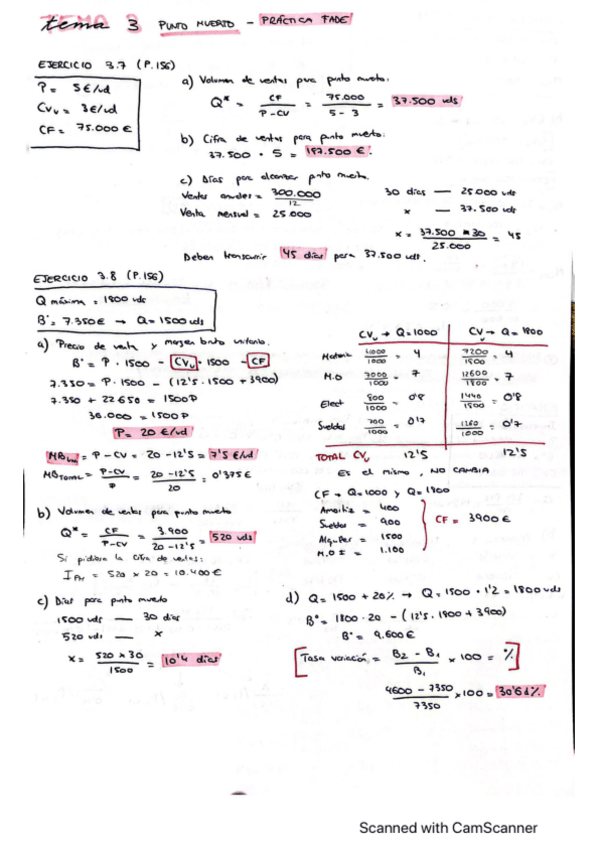 tema 3 PUNTO MUERTO - PRÁCTICA FADE
EJERCICIO 3.7 (P.156)
P = 5€/ud
CVu = 3€/ud
CF = 75.000 €
a) Volumen de ventas para punto muerto:
Q* = CF / P-CV = 75.000 / 5-3 = 37.500 uds
b) Cifra de ventas para punto muerto:
37.500 · 5 = 187.500 €.
c) Días para alcanzar punto muerto.
Ventas anuales = 300.000 / 12
Venta mensual = 25.000
30 días — 25.000 uds
x — 37.500 uds
x = 37.500 * 30 / 25.000 = 45
Deben transcurrir 45 días para 37.500 uds.
EJERCICIO 3.8 (P.156)
Q máxima = 1800 uds
Bº = 7.350€ → Q = 1500 uds
a) Precio de venta y margen bruto unitario.
Bº = P · 1500 - CVu · 1500 - CF
7.350 = P · 1500 - (12'5 · 1500 + 3900)
7.350 + 22.650 = 1500P
30.000 = 1500P
P = 20 €/ud
MB = P - CV = 20 - 12'5 = 7'5 €/ud
MBTOTAL = P-CV / P = 20-12'5 / 20 = 0'375€
CVu → Q = 1000
CVu → Q = 1800
Materia 4000/1000 = 4 7200/1800 = 4
M.O 7000/1000 = 7 12600/1800 = 7
Elect 800/1000 = 0'8 1440/1800 = 0'8
Sueldos 700/1000 = 0'7 1260/1000 = 0'7
TOTAL CVu 12'5 12'5
ES el mismo, NO CAMBIA
CF → Q = 1000 y Q = 1800
Amortiz = 400
Sueldos = 900
Alquiler = 1500
M.O I = 1.100
CF = 3900 €
b) Volumen de ventas para punto muerto
Q* = CF / P-CV = 3.900 / 20-12'5 = 520 uds
Si pidiera la cifra de ventas:
= 520 x 20 = 10.400 €
c) Días para punto muerto
1500 uds — 30 días
520 uds — x
x = 520 x 30 / 1500 = 10'4 días
d) Q = 1500 + 20% → Q = 1500 · 1'2 = 1800 uds
Bº = 1800 · 20 - (12'5 · 1800 + 3900)
Bº = 9.600 €
Tasa variación = B2 - B1 / B1 x 100 = %
9600 - 7350 / 7350 x 100 = 30'61%
Scanned with CamScanner